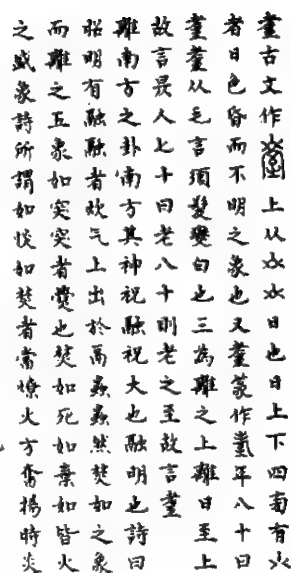 耋古文作上从火火日也日上下四面有火
者日色昏而不明之象也又耋篆作年八十曰
耋耋从毛言須髮變白也三為離之上離日至上
故言畏人七十曰老八十則老之至故言耋
離南方之卦南方其神祝融祝大也融明也詩曰
昭明有融融者炊气上出於鬲蟲蟲然焚如之象
而離之五象如突突者爨也焚如死如棄如皆火
之盛象詩所謂如惔如焚者當燎火方奮揚時炎